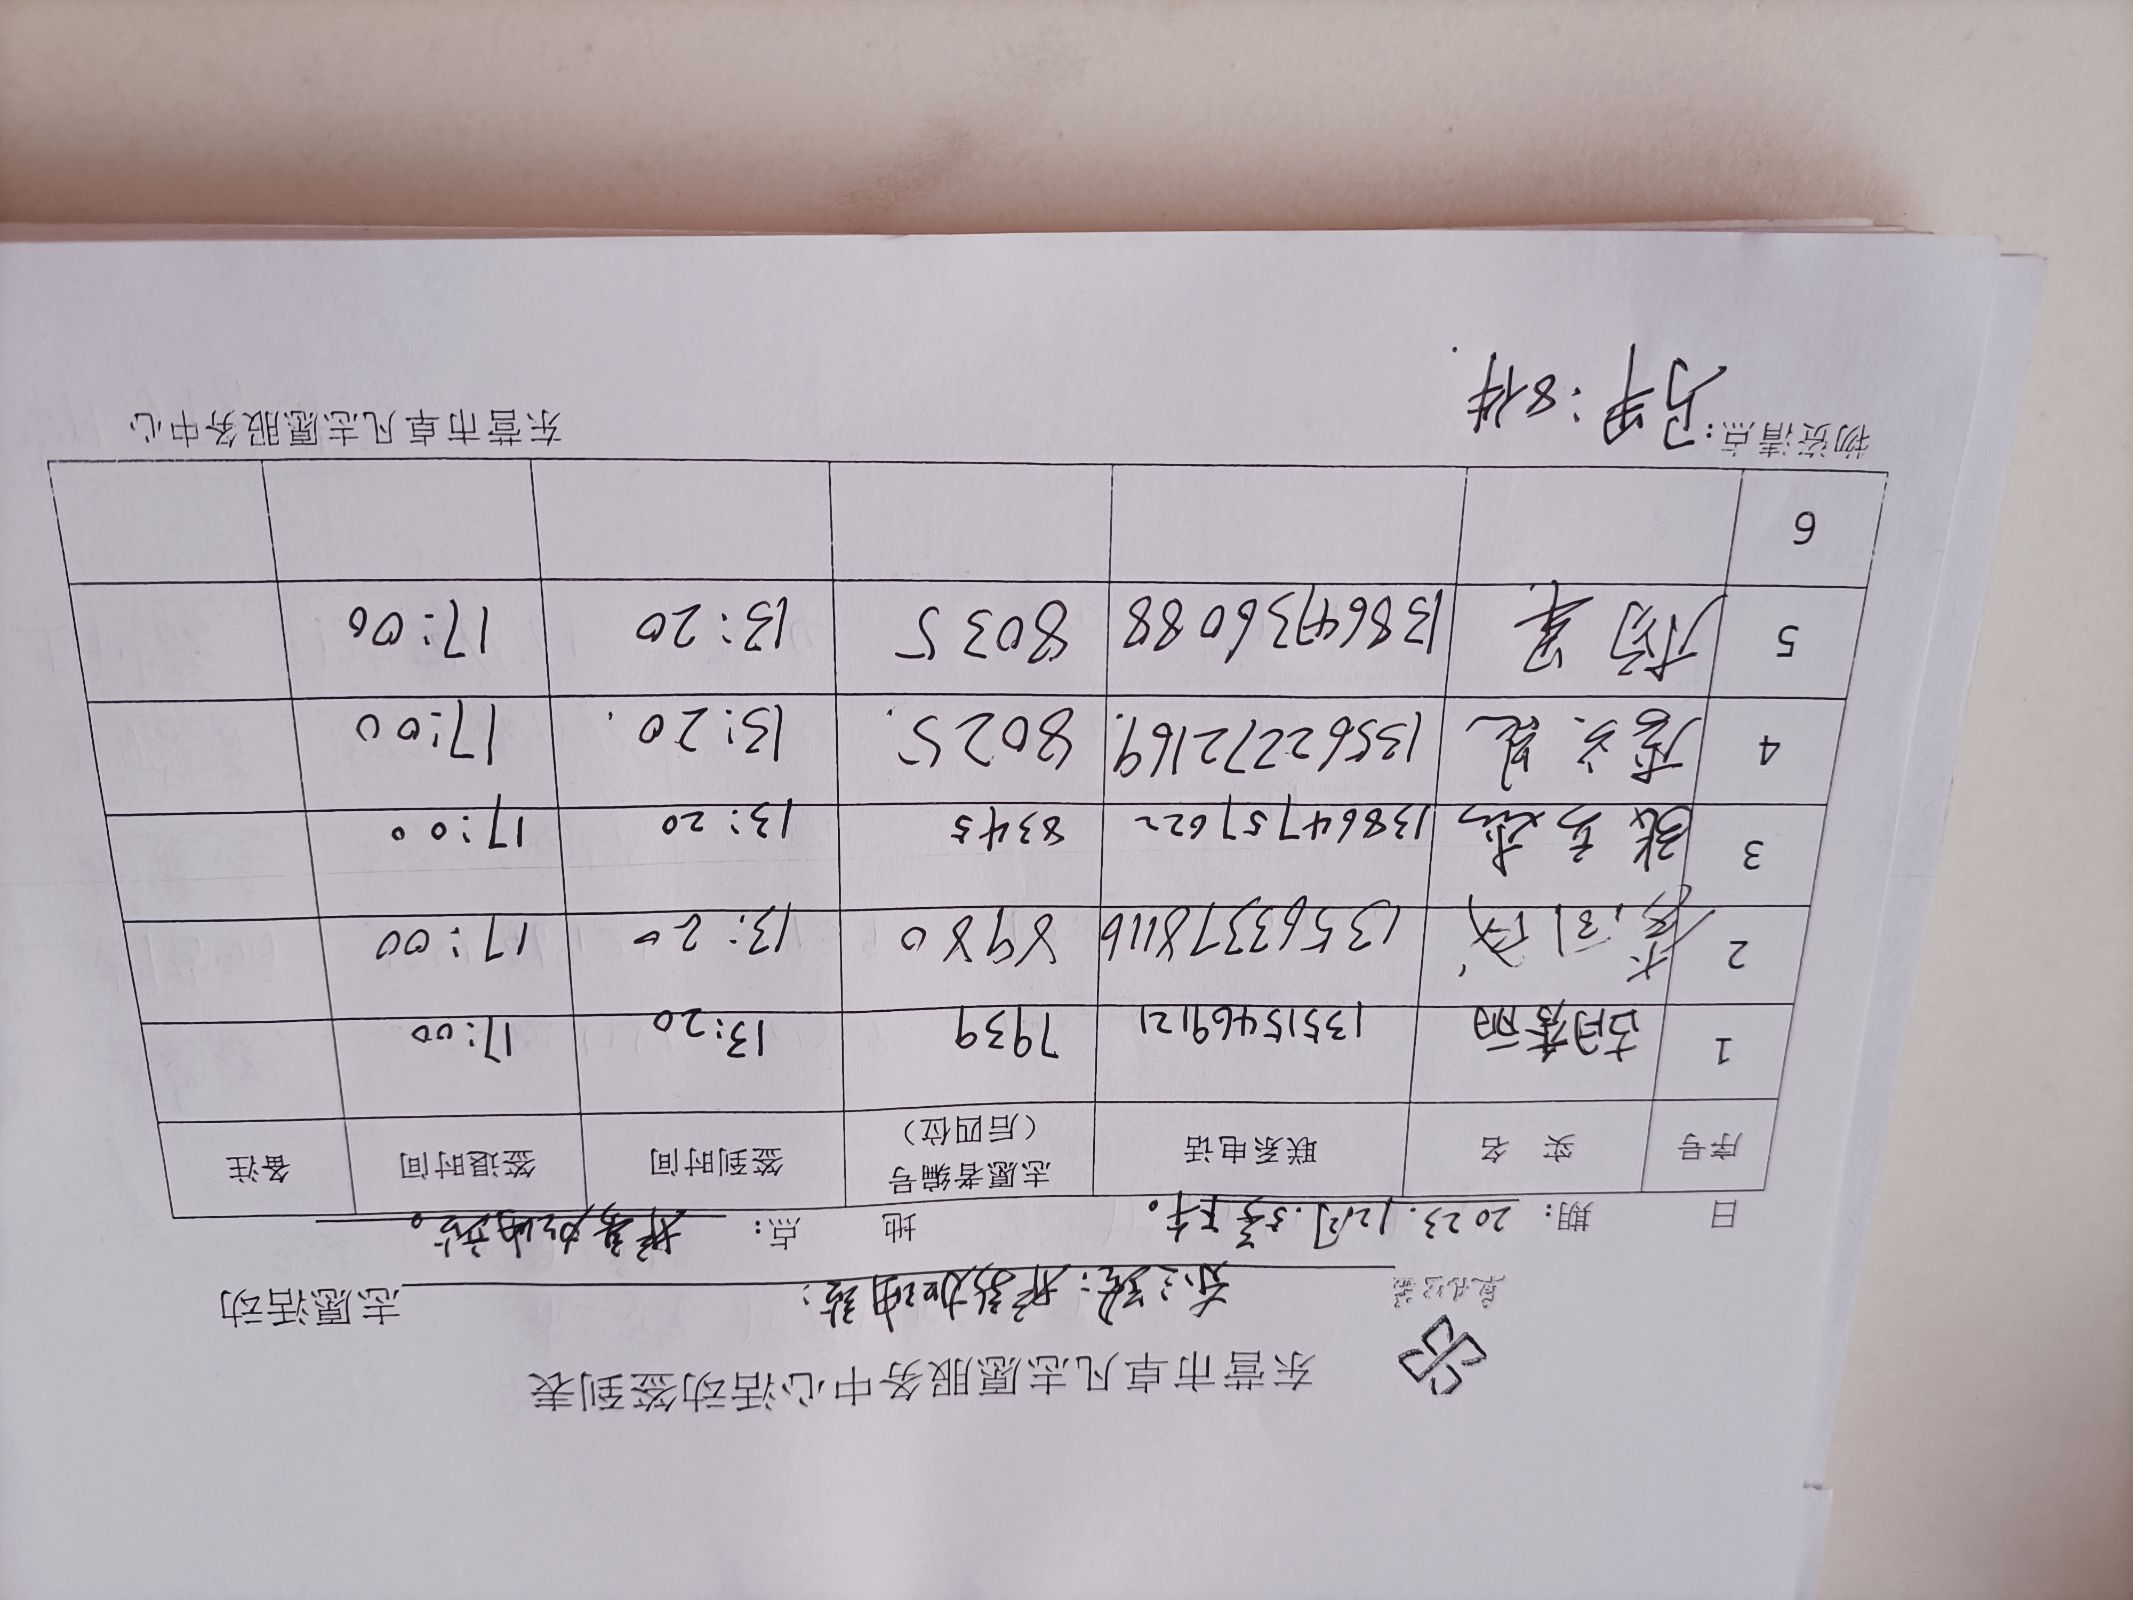 东营市卓凡志愿服务中心活动签到表
加油站 志愿活动
日 期: 2023.12月.5号下午。 地 点: 加油站。
序号 实 名 联系电话 志愿者编号(后四位) 签到时间 签退时间 备注
1 胡春丽 13515469121 7939 13:20 17:00
2 13563378116 8980 13:20 17:00
3 张 13864757622 8345 13:20 17:00
4 13562272169 8025 13:20 17:00
5 13864736088 8035 13:20 17:00
6
物资清点: 马甲:8件
东营市卓凡志愿服务中心